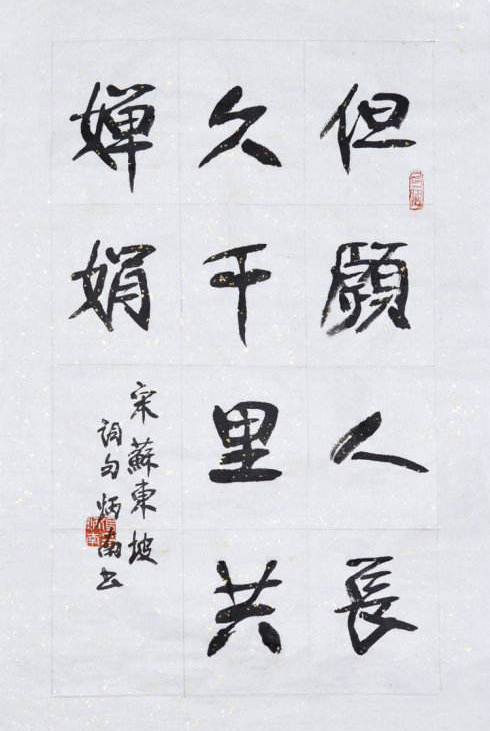 但願人長
久千里共
嬋娟
宋蘇東坡
詞句炳南书